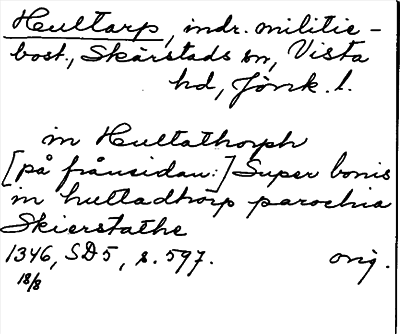 Hultarp, indr. militie-
bost., Skärstads sn, Vista
hd, Jönk. l.
in Hultathorph
[på frånsidan:] Super bonis
in hultadhorp parochia
Skierstathe
1346, SD5, s. 597. orig.
18/8